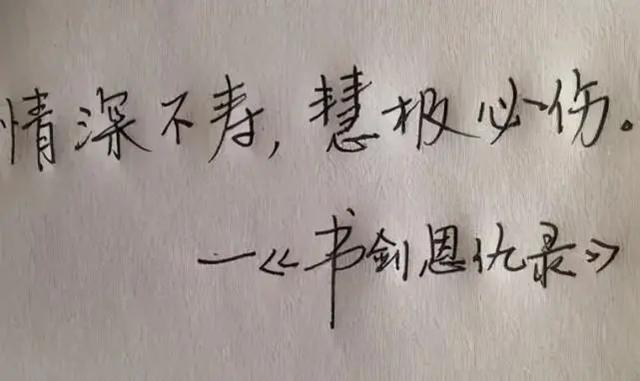 情深不寿，慧极必伤。
—《书剑恩仇录》